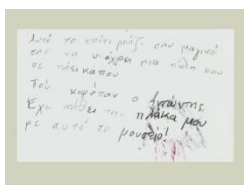 Αυτό το σπίτι μοιάζει σαν μαγικό
σαν να υπάρχει μια πύλη που
σε πάει κάπου
Που κρυβόταν ο Αντώνης
Έχω πάθει την πλάκα μου
με αυτό το μουσείο!